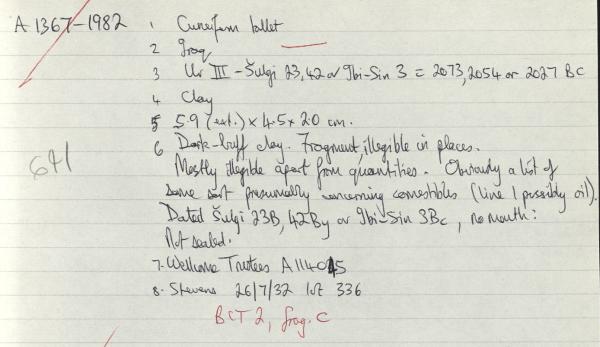 A 1367-1982 1 Cuneiform tablet
2 Iraq
3 Ur III - Šulgi 23, 42 or Ibi-Sin 3 = 2073, 2054 or 2027 BC
4 Clay
5 5.9 (ext.) x 4.5 x 2.0 cm.
6 Dark-buff clay. Fragment, illegible in places.
641
Mostly illegible apart from quantities. Obviously a list of
some sort presumably concerning comestibles (line 1 possibly oil).
Dated Šulgi 23B, 42By or Ibi-Sin 3Bc, no month:
Not sealed.
7. Wellcome Trustees A114045
8. Stevens 26/7/32 lot 336
BCT 2, frag. C